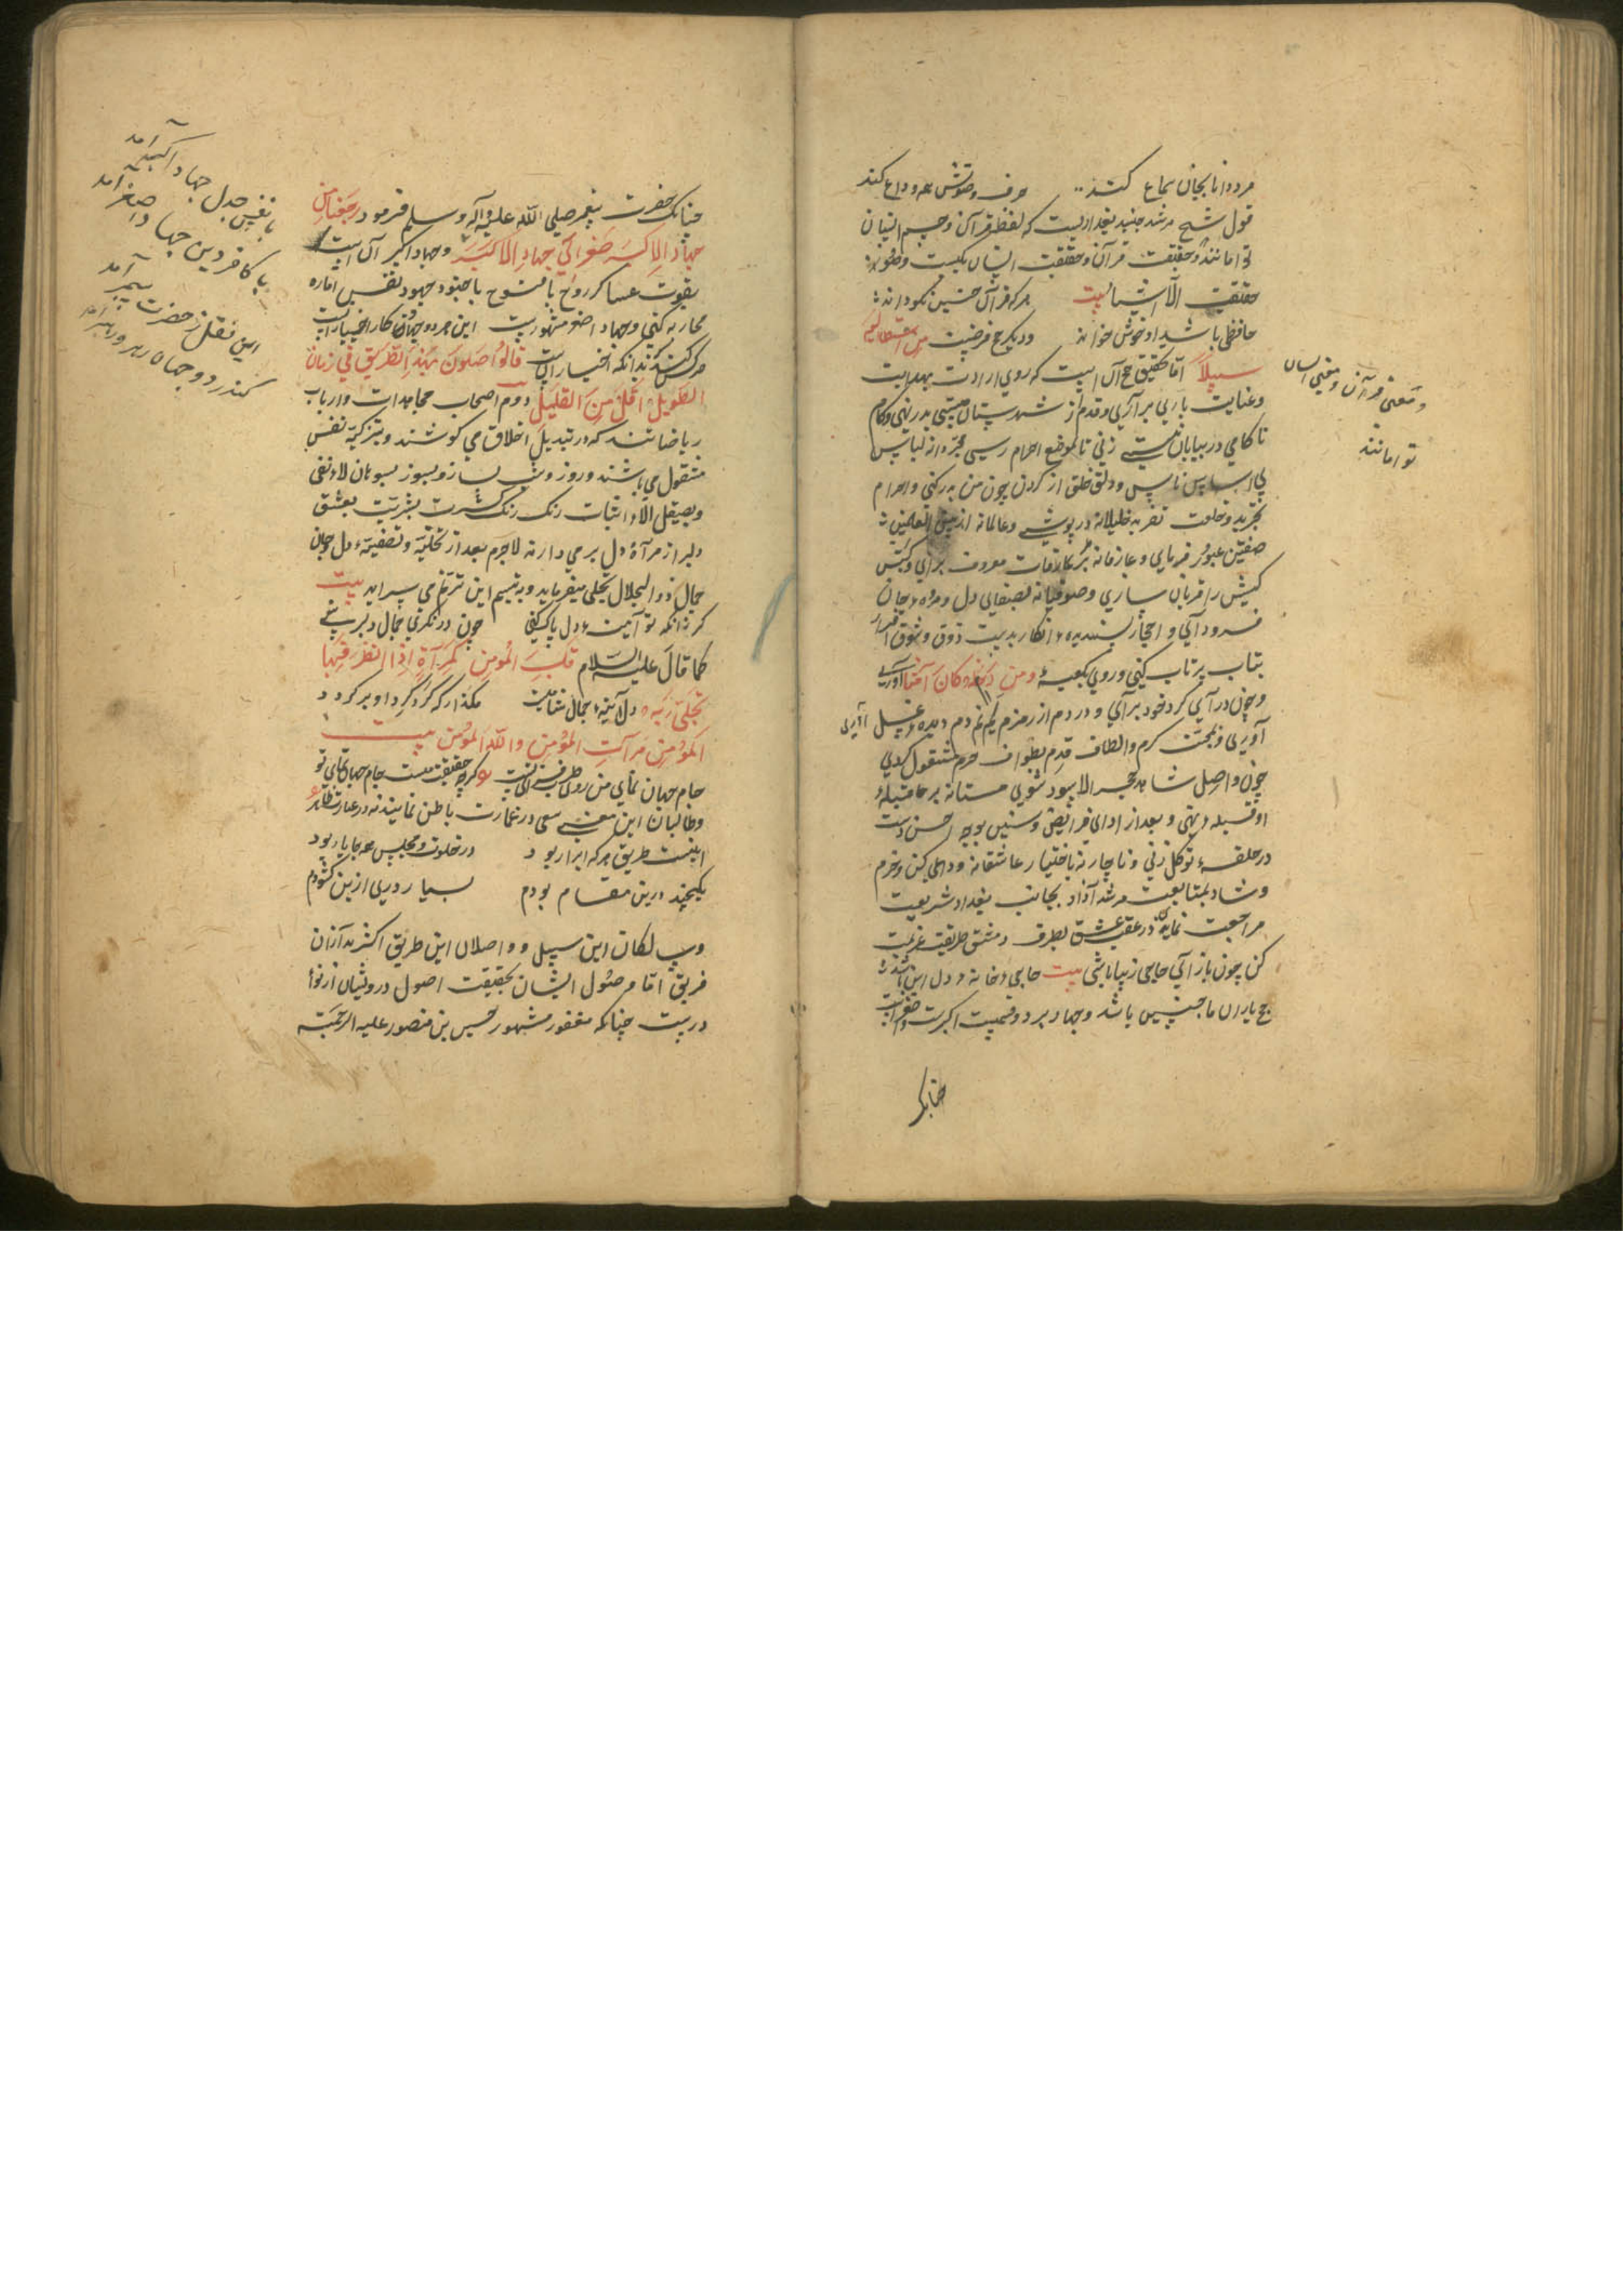 مرده دانا بجان سماع کند حرف و صوتش همه وداع کند
قول شیخ مرشد جنید بغدادیست که لفظ قرآن و جسم انسان
توامانند و حقیقت قرآن و حقیقت انسان یکیست
حقیقت الاشیا بیت هر که قرآن چنین نکو داند
حافظی باشد او خوش خواند و دیگر حج فرضیت من استطاع الیه
سبیلا اما تحقیق حج آن است که روی ارادت بهدایت
و عنایت باری برآری و قدم از شهرستان هستی بدر نهی و کام
ناکامی در بیابان نیستی زنی تا بموضع احرام رسی مجردانه لباس
بی اساس ناس و دلق خلق از گردن چون من بدر کنی و احرام
تجرید و خلعت تفرید خلیلانه درپوشی و عالمانه از میین العلمین
صفتین عبور فرمایی و عارفانه بر عرفات معروف برآیی و کبش
کیش را قربان سازی و صوفیانه بصفای دل و مروه جان
فرود آیی و احجار ناپسندیده انکار بدست ذوق و شوق
بتاب پرتاب کنی و روی بکعبه و من دخله کان آمنا آوری
و چون درآیی گرد خود برآیی و دردم از زمزم دم دیده غسل
آوری و بمحبت کرم و الطاف قدم بطواف حرم مشغول گردی
چون واصل شاهد حجر الاسود شوی مستانه بر خال
او قبله نهی و بعد از ادای فرایض و سنن بوجه احسن دست
در حلقه توکل زنی و ناچار نه باختیار عاشقانه وداعی کن و خرم
و شاد بمتابعت مرشد آزاد بجانب بغداد شریعت
مراجعت نمای در عقب عشق بطرف دمشق طریقت عزیمت
کن چون بازآیی حاجی زیبا باشی بیت حاجی خانه دل این باشد
حج یاران ما چنین باشد و جهاد بر دو قسمست اکبرست و اصغر است
چنانکه
و معنی قرآن و معنی انسان
توامانند
چنانک حضرت پیغمبر صلی الله علیه و آله و سلم فرمود رجعنا من
جهاد الاصغر الی جهاد الاکبر و جهاد اکبر آن است
بقوت عساکر روح با فتوح با جنود جهود نفس اماره
محاربه کنی و جهاد اصغر مشهورست این هر دو جهاد کار اخیار است
هر کس نکند آنکه اختیار است قالوا اصلون بهذا الطریق فی زمان
الطویل اقل من القلیل دوم اصحاب مجاهدات و ارباب
ریاضاتند که در تبدیل اخلاق می کوشند و بتزکیه نفس
مشغول می باشند و روز و شب بساز و بسوز بسوهان لاء نفی
و بصیقل الاء اثبات رنگ زنگ کثرت بشریت بعشق
دلبر از مرآة دل بر می دارند لاجرم بعد از تخلیه و تصفیه دل و جان
جمال ذوالجلال تجلی میفرماید و به تبسم این ترنم می سراید بیت
گر زانکه تو آینه دل پاک کنی چون درنگری جمال دلبر بینی
کما قال علیه السلام قلب المومن کمرآة اذا انظر فیها
تجلی ربه دل آینه جمال شاهیست مگذار که گرد گرد او برگردد
المؤمن مرآت المؤمن والله المؤمن بیت
جام جهان نمای من روی طرب فزای تست گرچه حقیقت منست جام جهان نمای تو
و طالبان این معنی سعی در عمارت باطن نمایند نه در عبارت ظاهر
اینست طریق هر که ابرار بود در خلوت و مجلس همه جا با یار بود
یکچند درین مقام بودم بسیار دری ازین گشودم
و سالکان این سبیل و واصلان این طریق اکثر بدآزان
فریق اما وصول ایشان بحقیقت اصول درویشان از نوا
درست چنانکه مغفور مشهور حسین بن منصور علیه الرحمة
با نفس جدل جهاد اکبر آمد
با کافر دین جهاد اصغر آمد
این نقل ز حضرت پیمبر آمد
کندر دو جهان رهبر و رهبر آمد